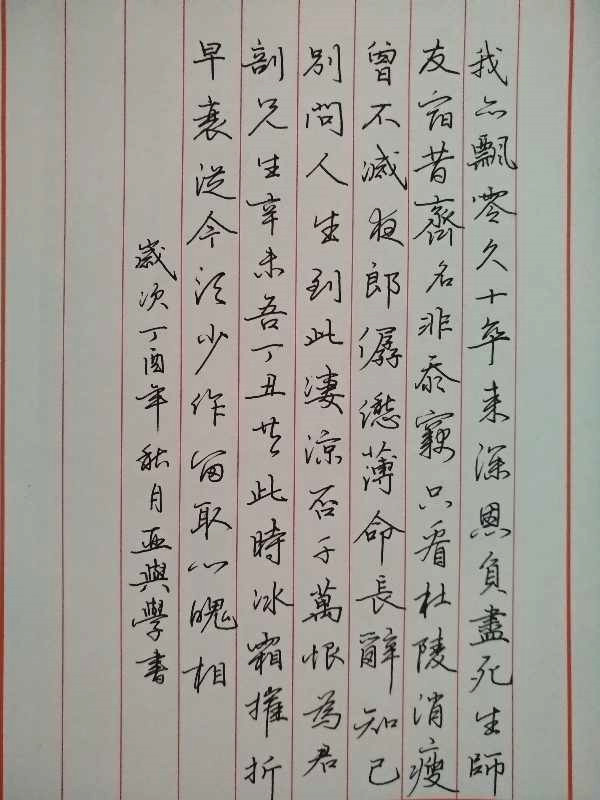 我亦飄零久十年來深恩負盡死生師
友宿昔齊名非忝竊只看杜陵消瘦
曾不減夜郎僝僽薄命長辭知己
別問人生到此淒涼否千萬恨為君
剖兄生辛未吾丁丑共此時冰霜摧折
早衰從今須少作留取心魄相
歲次丁酉年秋月亚與學書